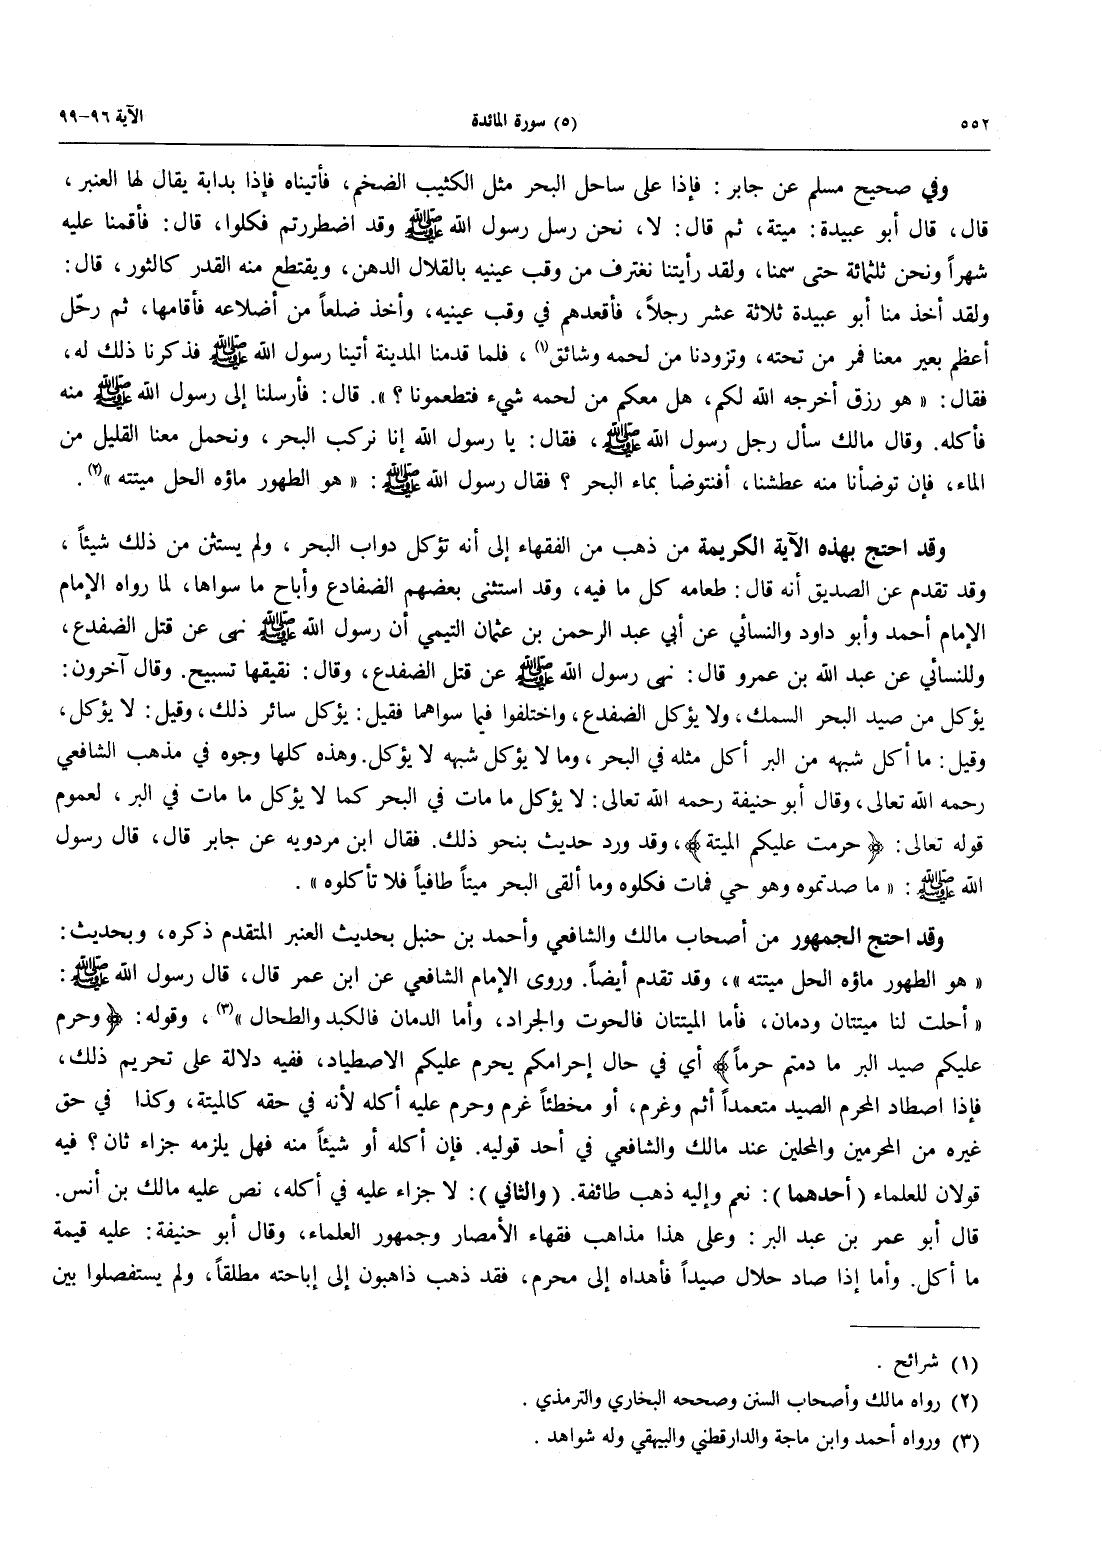 ٥٥٢ (٥) سورة المائدة الآية ٩٦-٩٩
وفي صحيح مسلم عن جابر : فإذا على ساحل البحر مثل الكثيب الضخم، فأتيناه فإذا بدابة يقال لها العنبر ،
قال، قال أبو عبيدة: ميتة، ثم قال: لا، نحن رسل رسول الله ﷺ وقد اضطررتم فكلوا، قال: فأقمنا عليه
شهراً ونحن ثلثمائة حتى سمنا، ولقد رأيتنا نغترف من وقب عينيه بالقلال الدهن، ويقتطع منه القدر كالثور، قال:
ولقد أخذ منا أبو عبيدة ثلاثة عشر رجلاً، فأقعدهم في وقب عينيه، وأخذ ضلعاً من أضلاعه فأقامها، ثم رحّل
أعظم بعير معنا فمر من تحته، وتزودنا من لحمه وشائق(١) ، فلما قدمنا المدينة أتينا رسول الله ﷺ فذكرنا ذلك له،
فقال: « هو رزق أخرجه الله لكم، هل معكم من لحمه شيء فتطعمونا ؟ ». قال: فأرسلنا إلى رسول الله ﷺ منه
فأكله. وقال مالك سأل رجل رسول الله ﷺ ، فقال: يا رسول الله إنا نركب البحر ، ونحمل معنا القليل من
الماء، فإن توضأنا منه عطشنا، أفنتوضأ بماء البحر ؟ فقال رسول الله ﷺ : « هو الطهور ماؤه الحل ميتته »(٢) .
وقد احتج بهذه الآية الكريمة من ذهب من الفقهاء إلى أنه تؤكل دواب البحر ، ولم يستثن من ذلك شيئاً ،
وقد تقدم عن الصديق أنه قال: طعامه كل ما فيه، وقد استثنى بعضهم الضفادع وأباح ما سواها، لما رواه الإمام
الإمام أحمد وأبو داود والنسائي عن أبي عبد الرحمن بن عثمان التيمي أن رسول الله ﷺ نهى عن قتل الضفدع،
وللنسائي عن عبد الله بن عمرو قال: نهى رسول الله ﷺ عن قتل الضفدع، وقال: نقيقها تسبيح. وقال آخرون:
يؤكل من صيد البحر السمك، ولا يؤكل الضفدع، واختلفوا فيما سواهما فقيل: يؤكل سائر ذلك، وقيل: لا يؤكل،
وقيل: ما أكل شبهه من البر أكل مثله في البحر ، وما لا يؤكل شبهه لا يؤكل. وهذه كلها وجوه في مذهب الشافعي
رحمه الله تعالى، وقال أبو حنيفة رحمه الله تعالى: لا يؤكل ما مات في البحر كما لا يؤكل ما مات في البر ، لعموم
قوله تعالى: ﴿ حرمت عليكم الميتة ﴾، وقد ورد حديث بنحو ذلك. فقال ابن مردويه عن جابر قال، قال رسول
الله ﷺ : « ما صدتموه وهو حي فمات فكلوه وما ألقى البحر ميتاً طافياً فلا تأكلوه » .
وقد احتج الجمهور من أصحاب مالك والشافعي وأحمد بن حنبل بحديث العنبر المتقدم ذكره، وبحديث:
« هو الطهور ماؤه الحل ميتته »، وقد تقدم أيضاً. وروى الإمام الشافعي عن ابن عمر قال، قال رسول الله ﷺ :
« أحلت لنا ميتتان ودمان، فأما الميتتان فالحوت والجراد، وأما الدمان فالكبد والطحال »(٣) ، وقوله: ﴿ وحرم
عليكم صيد البر ما دمتم حرماً ﴾ أي في حال إحرامكم يحرم عليكم الاصطياد، ففيه دلالة على تحريم ذلك،
فإذا اصطاد المحرم الصيد متعمداً أثم وغرم، أو مخطئاً غرم وحرم عليه أكله لأنه في حقه كالميتة، وكذا في حق
غيره من المحرمين والمحلين عند مالك والشافعي في أحد قوليه. فإن أكله أو شيئاً منه فهل يلزمه جزاء ثان ؟ فيه
قولان للعلماء ( أحدهما ): نعم وإليه ذهب طائفة. ( والثاني ): لا جزاء عليه في أكله، نص عليه مالك بن أنس.
قال أبو عمر بن عبد البر : وعلى هذا مذاهب فقهاء الأمصار وجمهور العلماء، وقال أبو حنيفة: عليه قيمة
ما أكل. وأما إذا صاد حلال صيداً فأهداه إلى محرم، فقد ذهب ذاهبون إلى إباحته مطلقاً، ولم يستفصلوا بين
(١) شرائح .
(٢) رواه مالك وأصحاب السنن وصححه البخاري والترمذي .
(٣) ورواه أحمد وابن ماجة والدارقطني والبيهقي وله شواهد .